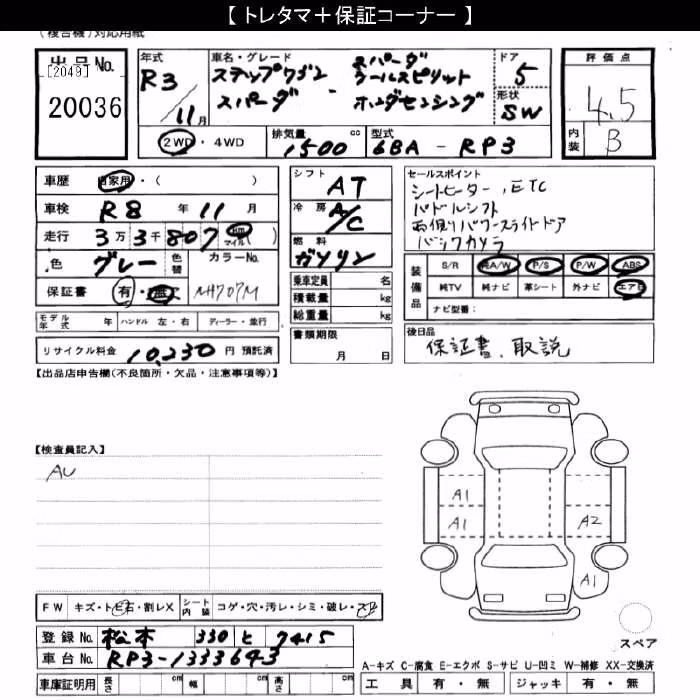 【 トレタマ＋保証コーナー 】
(複合機)対応用紙
出品No.
[2049]
20036
年式 R3 / 11月
車名・グレード
ステップワゴン スパーダ
スパーダ クールスピリット ホンダセンシング
ドア 5
形状 SW
2WD・4WD
排気量 1500 cc
型式 6BA - RP3
評価点 4.5
内装 B
車歴 自家用・( )
車検 R8 年 11 月
走行 3万3千807 km マイル( )
色 グレー 色替 カラーNo.
保証書 有・無 NH707M
モデル年式 年 ハンドル 左・右 ディーラー・並行
リサイクル料金 10,230 円 預託済
シフト AT
冷房 A/C
燃料 ガソリン
乗車定員 名
積載量 kg
総重量 kg
書類期限
月 日
セールスポイント
シートヒーター，ETC
パドルシフト
両側パワースライドドア
バックカメラ
装備品 S/R 純A/W P/S P/W ABS
純TV 純ナビ 革シート 外ナビ エアB
ナビ型番：
後日品
保証書、取説
【出品店申告欄(不良箇所・欠品・注意事項等)】
【検査員記入】
AU
A1
A1
A2
A1
スペア
FW キズ・トビ石・割レX シート内装 コゲ・穴・汚レ・シミ・破レ・スレ
登録No. 松本 330 と 7415
車台No. RP3-1333643
車庫証明用 長さ cm 幅 cm 高さ cm
A-キズ C-腐食 E-エクボ S-サビ U-凹ミ W-補修 XX-交換済
工具 有・無 ジャッキ 有・無